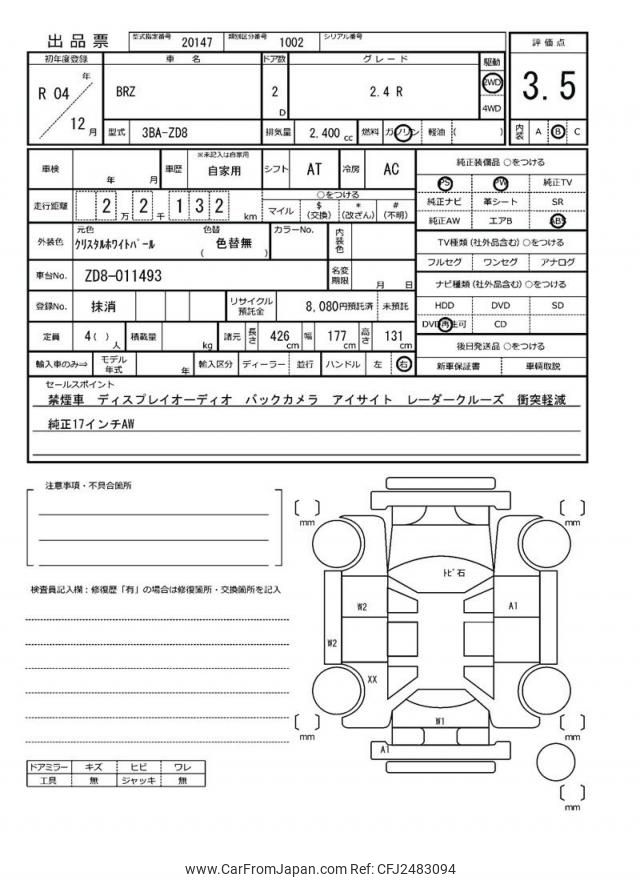 出品票 型式指定番号 20147 類別区分番号 1002 シリアル番号
初年度登録 車名 ドア数 グレード 駆動 評価点
R 04 年 12 月 BRZ 2 D 2.4 R 2WD 4WD 3.5
型式 3BA-ZD8 排気量 2.400 cc 燃料 ガソリン 軽油 ( ) 内装 A B C
車検 年 月 車歴 ※未記入は自家用 自家用 シフト AT 冷房 AC 純正装備品 ○をつける
PS PW 純正TV
走行距離 2 万 2 千 1 3 2 km ○をつける マイル $ (交換) * (改ざん) # (不明) 純正ナビ 革シート SR
純正AW エアB ABS
外装色 元色 クリスタルホワイトパール 色替 色替無 ( ) カラーNo. 内装色 TV種類 (社外品含む) ○をつける
フルセグ ワンセグ アナログ
車台No. ZD8-011493 名変期限 月 日 ナビ種類 (社外品含む) ○をつける
登録No. 抹消 リサイクル預託金 8,080円預託済 未預託 HDD DVD SD
DVD再生可 CD
定員 4 ( ) 人 積載量 kg 諸元 長さ 426 cm 幅 177 cm 高さ 131 cm 後日発送品 ○をつける
輸入車のみ⇒ モデル年式 年 輸入区分 ディーラー 並行 ハンドル 左 右 新車保証書 車輌取説
セールスポイント
禁煙車 ディスプレイオーディオ バックカメラ アイサイト レーダークルーズ 衝突軽減
純正17インチAW
注意事項・不具合箇所
検査員記入欄:修復歴「有」の場合は修復箇所・交換箇所を記入
ドアミラー キズ ヒビ ワレ
工具 無 ジャッキ 無
mm mm
トビ石
W2 A1
W2
XX
W1
mm mm
A1
mm
www.CarFromJapan.com Ref: CFJ2483094